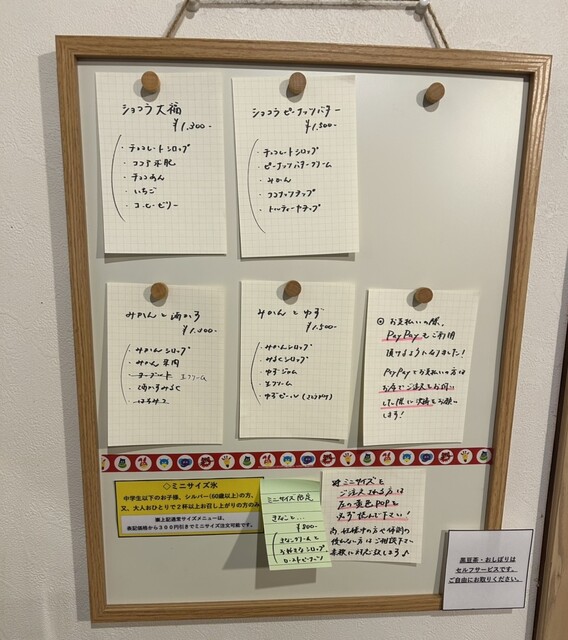 ショコラ大福
¥1,300-
・チョコレートシロップ
・ココア求肥
・チョコあん
・いちご
・コーヒーゼリー
ショコラピーナッツバター
¥1,500-
・チョコレートシロップ
・ピーナッツバタークリーム
・みかん
・ココナッツチップ
・トルティーヤチップ
みかんと酒かす
・みかんシロップ
・みかん果肉
・ヨーグルト 生クリーム
・酒かすみるく
・はちみつ
みかんとゆず
¥1,500-
・みかんシロップ
・みるくシロップ
・ゆずジャム
・生クリーム
・ゆずピール
◎お支払いの際、
PayPayもご利用
頂けるようになりました!
PayPayでお支払いの方は
お席でご注文をお伺い
した際に決済をお願い
します!
◇ミニサイズ氷
中学生以下のお子様、シルバー(60歳以上)の方、
又、大人おひとりで2杯以上お召し上がりの方のみ
裏上記通常サイズメニューは、
表記価格から300円引きでミニサイズ注文可能です。
ミニサイズ限定
きなこと…
¥800-
きなこクリームと
お好きなシロップ
ローストピーナッツ
※ミニサイズを
ご注文される方は
左の黄色POPを
必ず読んで下さい!
尚、妊婦中の方や体調の
優れない方はご相談下さい
柔軟に対応致します♪
黒豆茶・おしぼりは
セルフサービスです。
ご自由にお取りください。